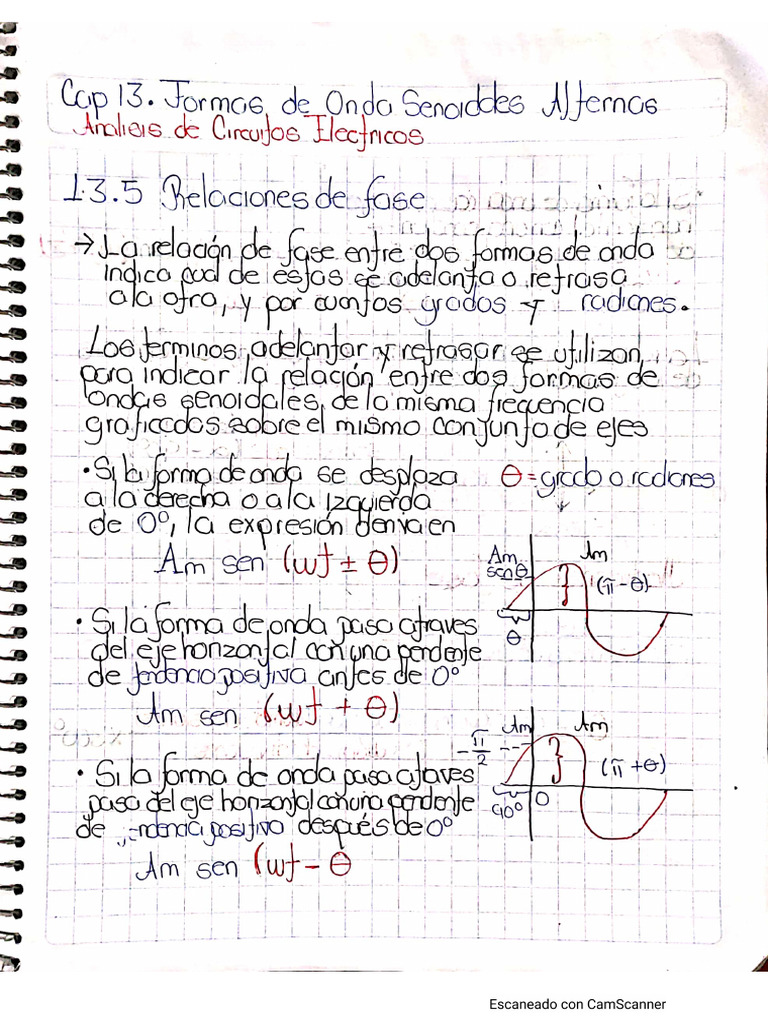 Cap 13. Formas de Onda Senoidales Alternas
Analisis de Circuitos Electricos
13.5 Relaciones de fase
→ La relación de fase entre dos formas de onda
indica cual de estas se adelanta o retrasa
a la otra, y por cuantos grados y radianes.
Los terminos, adelantar y retrasar se utilizan
para indicar la relación entre dos formas de
ondas senoidales, de la misma frecuencia
graficados sobre el mismo conjunto de ejes
• Si la forma de onda se desplaza
a la derecha o a la izquierda
de 0°, la expresión deriva en
θ = grado o radianes
Am sen (wt ± θ)
Am senθ
Am
(π - θ)
θ
• Si la forma de onda pasa atraves
del eje horizontal con una pendiente
de tendencia positiva antes de 0°
Am sen (wt + θ)
• Si la forma de onda pasa a traves
pasa del eje horizontal con una pendiente
de tendencia positiva después de 0°
Am sen (wt - θ
Am
Am
- π/2
(π + θ)
90°
0
Escaneado con CamScanner